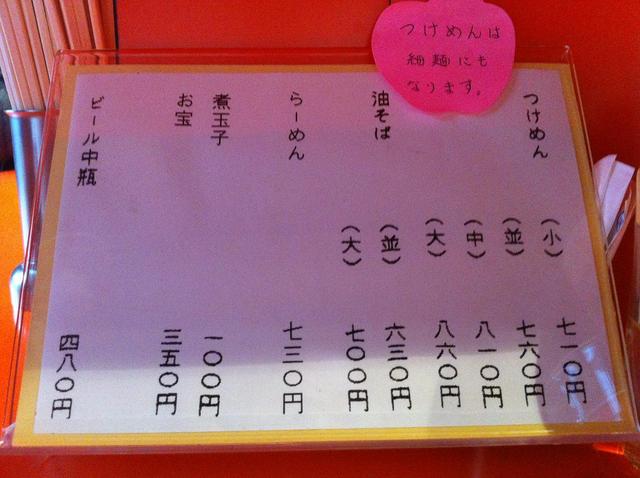 つけめんは
細麺にも
なります。
つけめん （小） 七一〇円
（並） 七六〇円
（中） 八一〇円
（大） 八六〇円
油そば （並） 六三〇円
（大） 七〇〇円
らーめん 七三〇円
煮玉子 一〇〇円
お宝 三五〇円
ビール中瓶 四八〇円